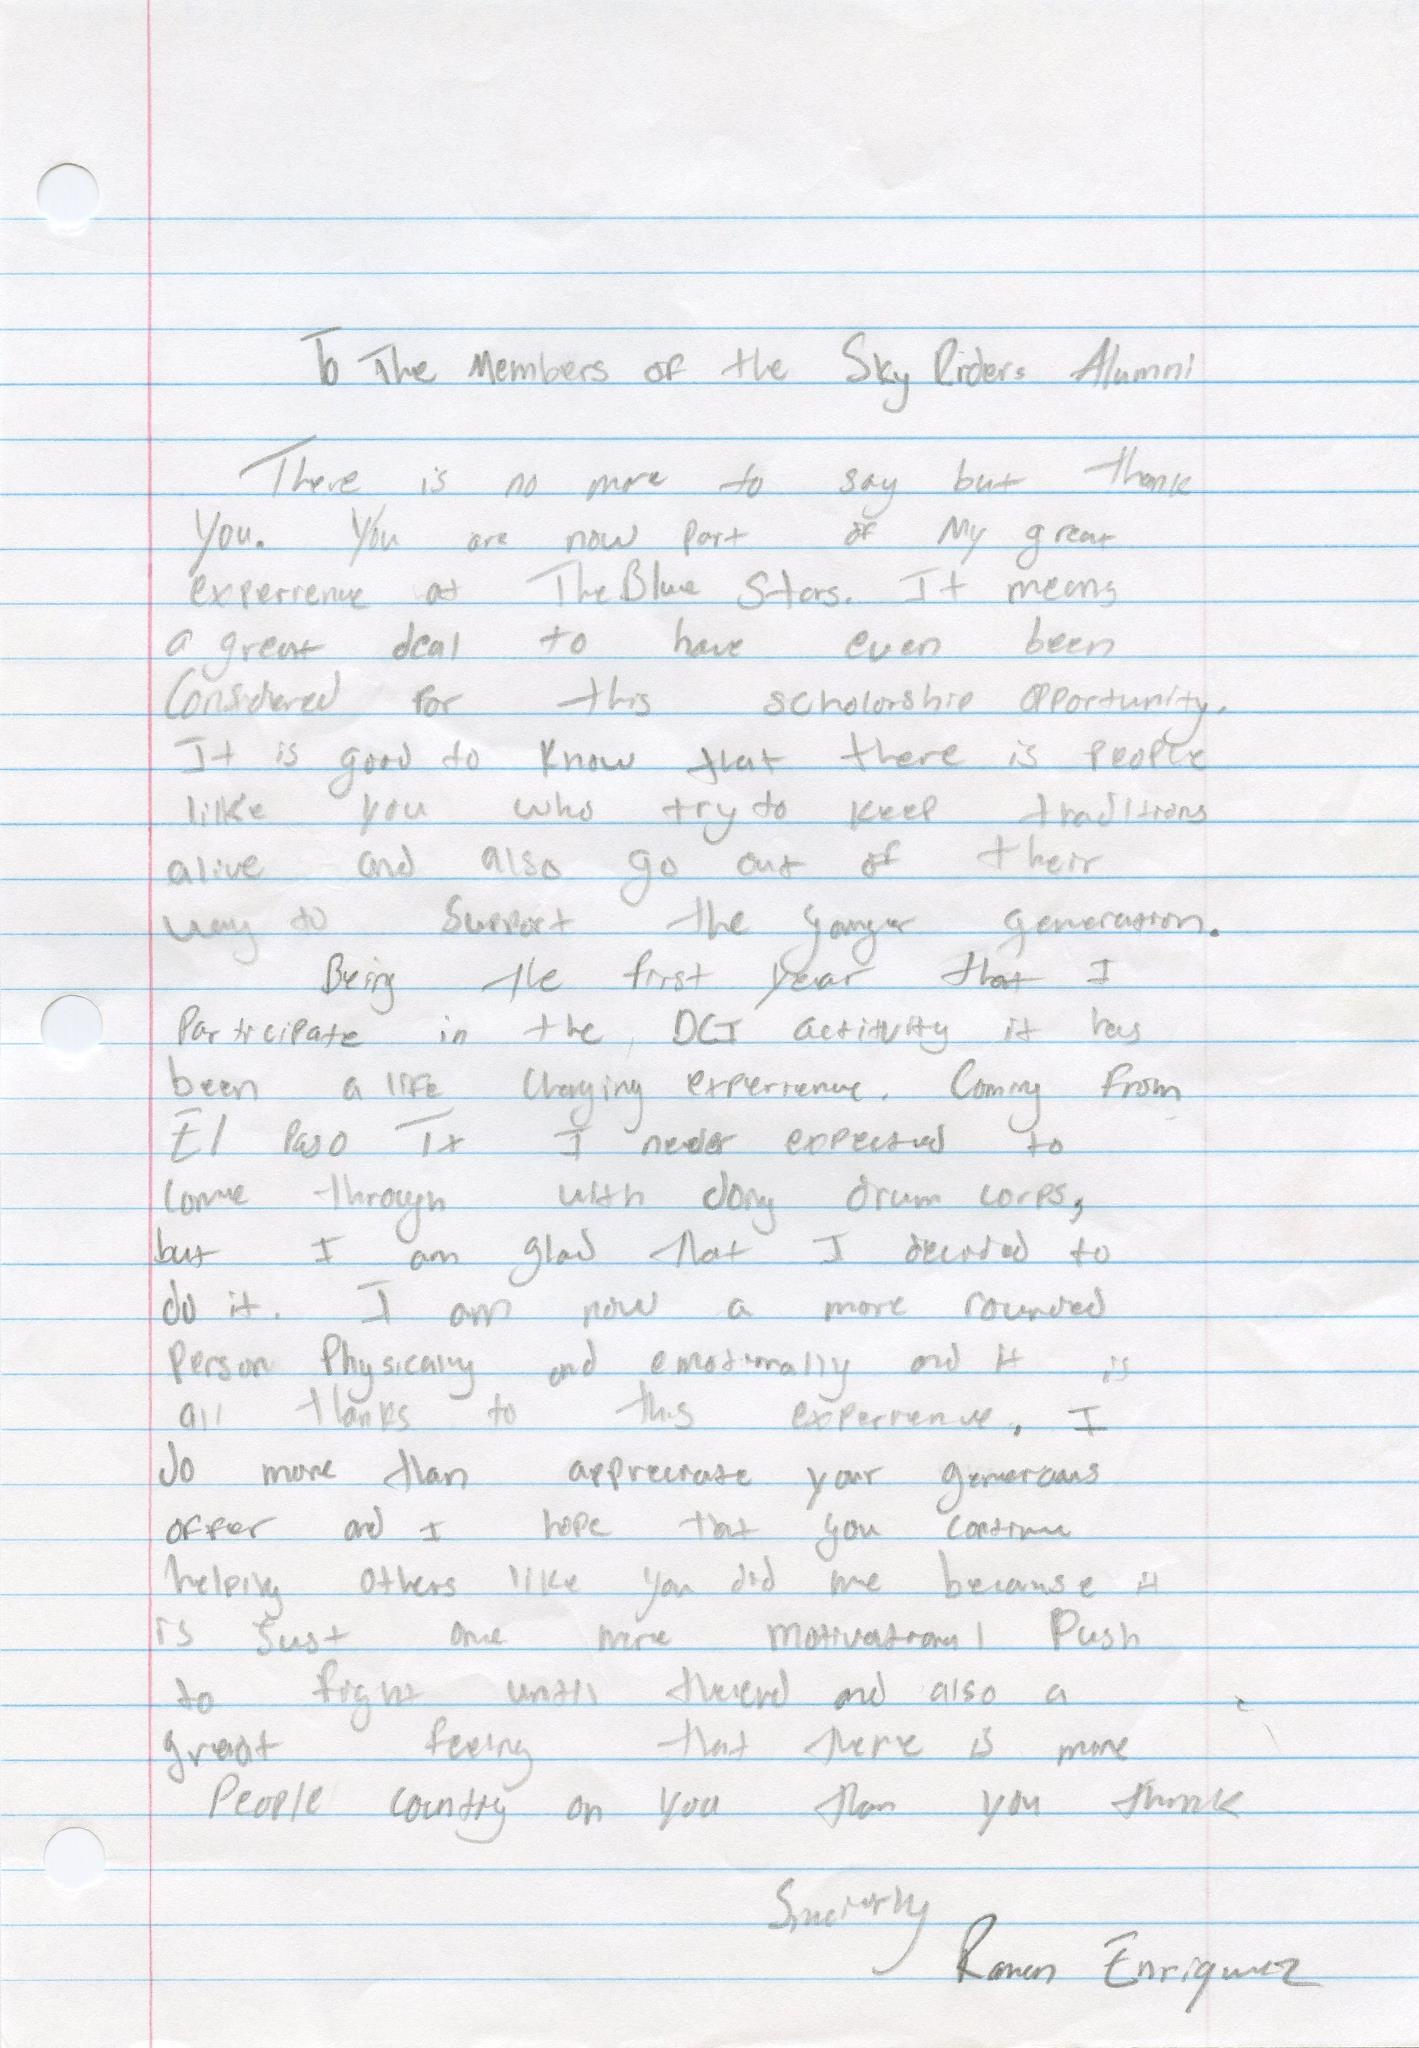 To The Members of the Sky Riders Alumni
There is no more to say but thank
you. You are now part of My great
experience at The Blue Stars. It means
a great deal to have even been
Considered for this scholorship opportunity.
It is good to know that there is people
like you who try to keep traditions
alive and also go out of their
way to support the yonger generation.
Being the first year that I
Participate in the DCI activity it has
been a life changing experience. Coming from
El Paso Tx I never expected to
come through with doing drum corps,
but I am glad that I decided to
do it. I am now a more rounded
person Physically and emotionally and it is
all thanks to this experience. I
do more than appreciate your generous
offer and I hope that you continue
helping others like you did me because it
is just one more motivational Push
to fight until the end and also a
great feeling that there is more
People counting on you than you think
Sincierly
Ramon Enriquez